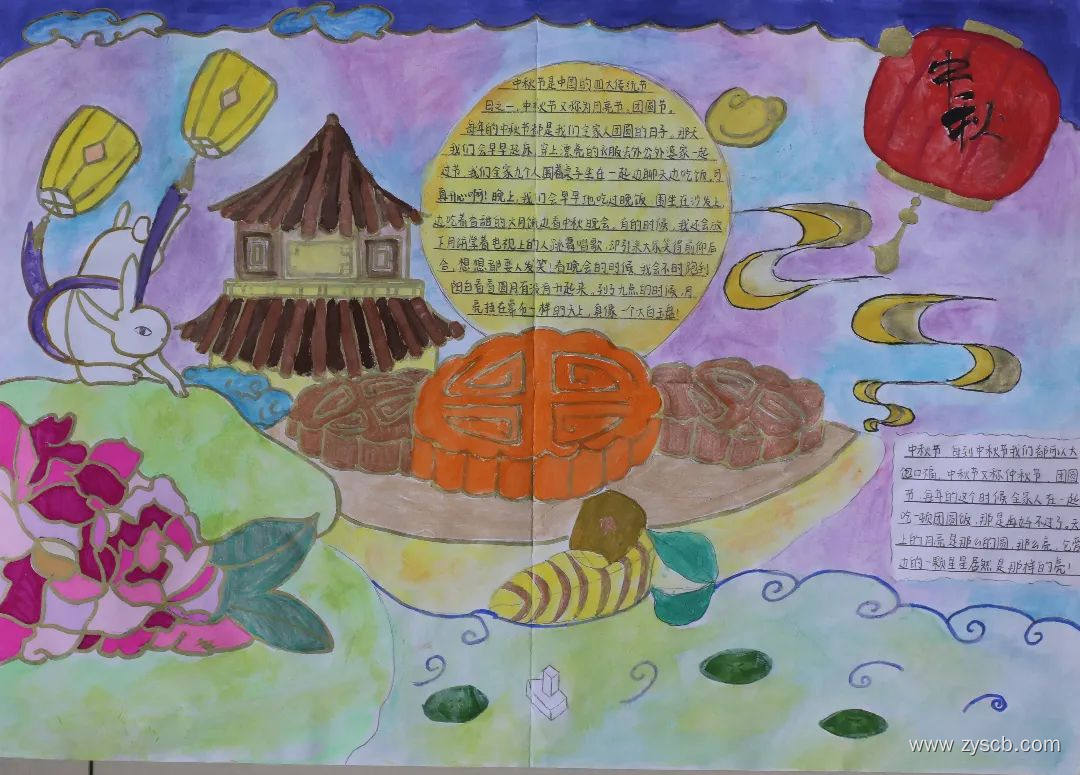 中秋节是中国的四大传统节
日之一，中秋节又称为月亮节，团圆节。
每年的中秋节都是我们全家人团圆的日子。那天
我们会早早起床，穿上漂亮的衣服去外公外婆家一起
过节，我们全家九个人围着桌子坐在一起边聊天边吃饭，可
真开心啊！晚上，我们会早早地吃过晚饭，围坐在沙发上，
边吃着香甜的大月饼边看中秋晚会。有的时候，我还会放
下月饼学着电视上的人跳着唱歌，
合，想想都要人发笑！看晚会的时候，我会不时跑到
阳台看看圆月有没有升起来，到了九点的时候，月
亮挂在幕布一样的天上，真像一个大白玉盘！
中秋
中秋节 每到中秋节我们都可以大
饱口福，中秋节又称仲秋节 团圆
节，每年的这个时候全家人在一起
吃一顿团圆饭，那是再好不过了。天
上的月亮是那么的圆，那么亮，它旁
边的一颗星星居然是那样的亮！
www.zyscb.com